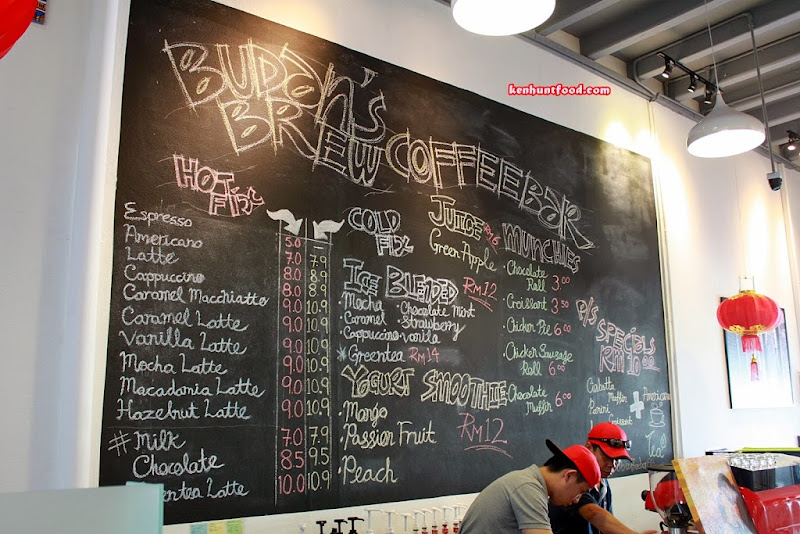 kenhuntfood.com
Budan's
BREW COFFEE BAR
HOT FIX
COLD FIX
Espresso 5.0
Americano 7.0 7.9
Latte 8.0 8.9
Cappuccino 8.0 8.9
Caramel Macchiatto 9.0 10.9
Caramel Latte 9.0 10.9
Vanilla Latte 9.0 10.9
Mocha Latte 9.0 10.9
Macadamia Latte 9.0 10.9
Hazelnut Latte 9.0 10.9
# Milk 7.0 7.9
Chocolate 8.5 9.5
Latte 10.0 10.9
ICE BLENDED RM12
Mocha · Chocolate Mint
· Caramel · Strawberry
Cappuccino · Vanilla
* Greentea RM14
YOGURT SMOOTHIE
· Mango
· Passion Fruit RM12
· Peach
JUICE RM6
Green Apple
MUNCHIES
· Chocolate Roll 3.00
· Croissant 3.50
· Chicken Pie 6.00
· Chicken Sausage Roll 6.00
· Chocolate Muffin 6.00
SPECIALS
RM10.00
Ciabatta
Muffin
Panini
Croissant
+
Americano
Tea!